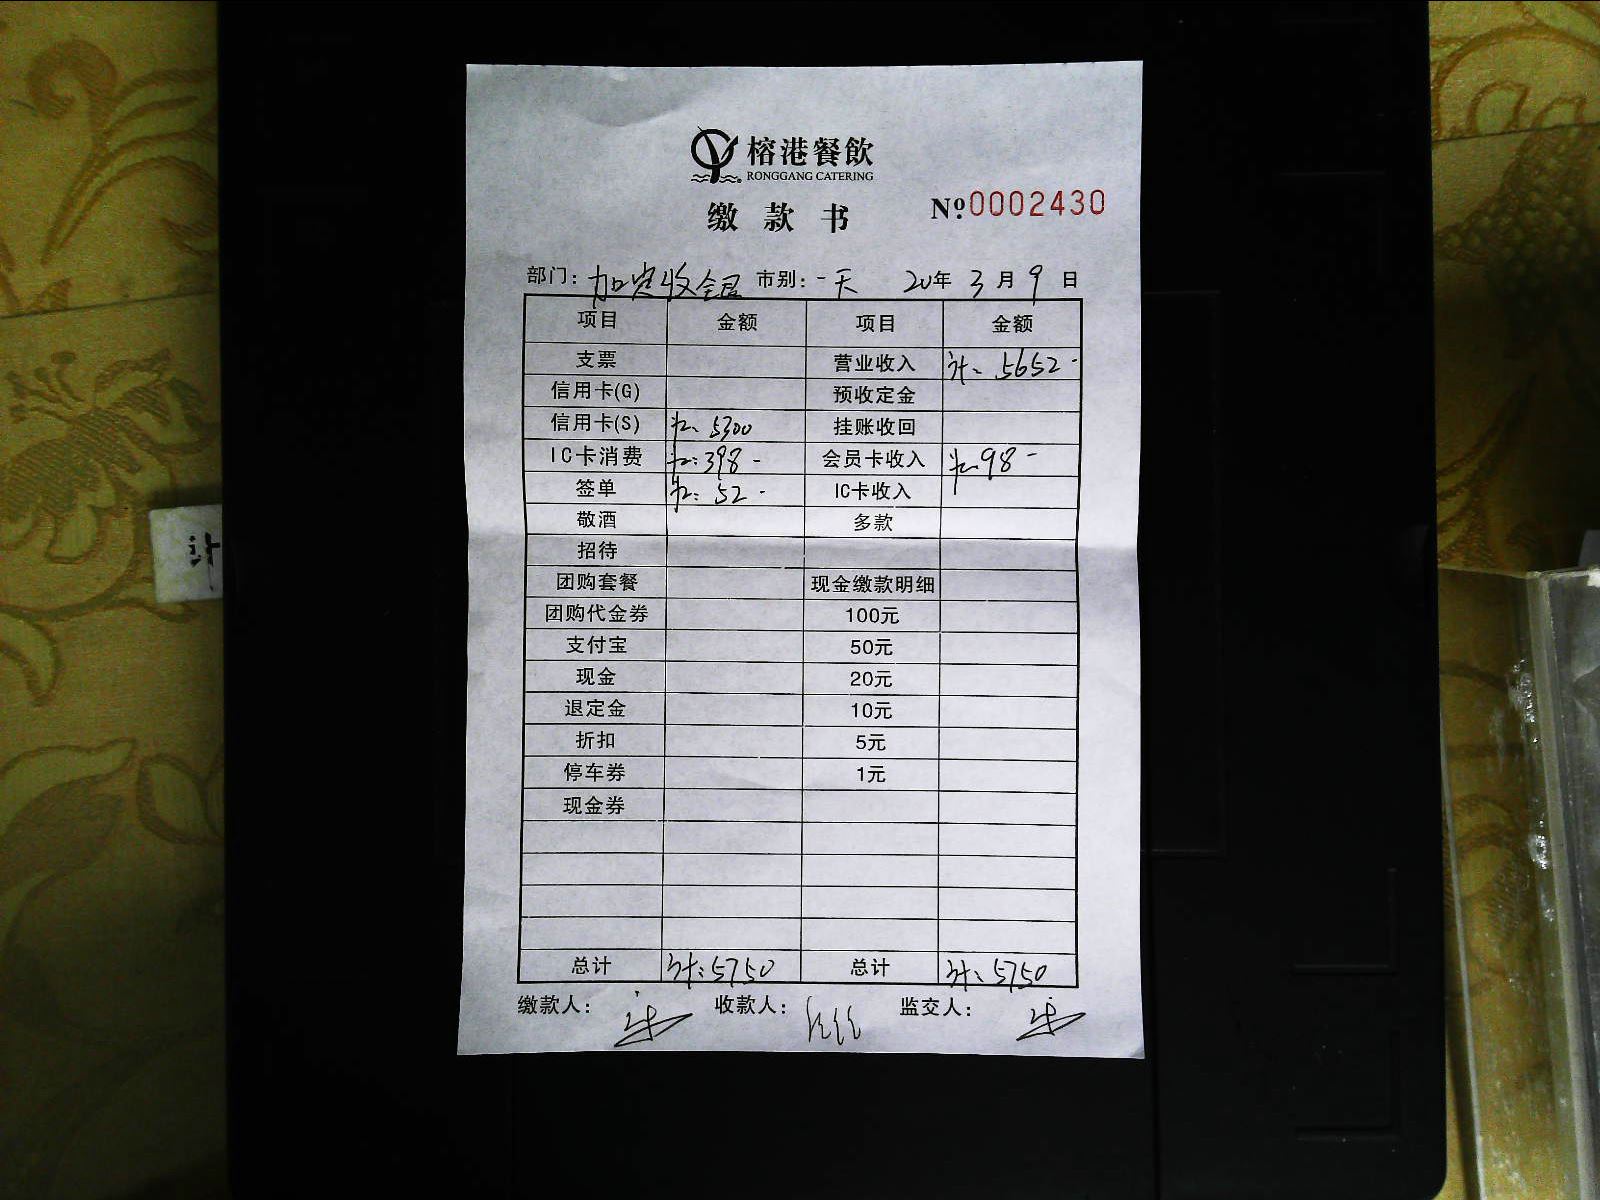 榕港餐飲
RONGGANG CATERING
缴款书 №0002430
部门：加宾收银 市别：一天 20 年 3 月 9 日
项目 金额 项目 金额
支票 营业收入 计、5652-
信用卡(G) 预收定金
信用卡(S) 5300 挂账收回
IC卡消费 398- 会员卡收入 98-
签单 52- IC卡收入
敬酒 多款
招待
团购套餐 现金缴款明细
团购代金券 100元
支付宝 50元
现金 20元
退定金 10元
折扣 5元
停车券 1元
现金券
总计 计：5750 总计 计、5750
缴款人： 收款人： 监交人：